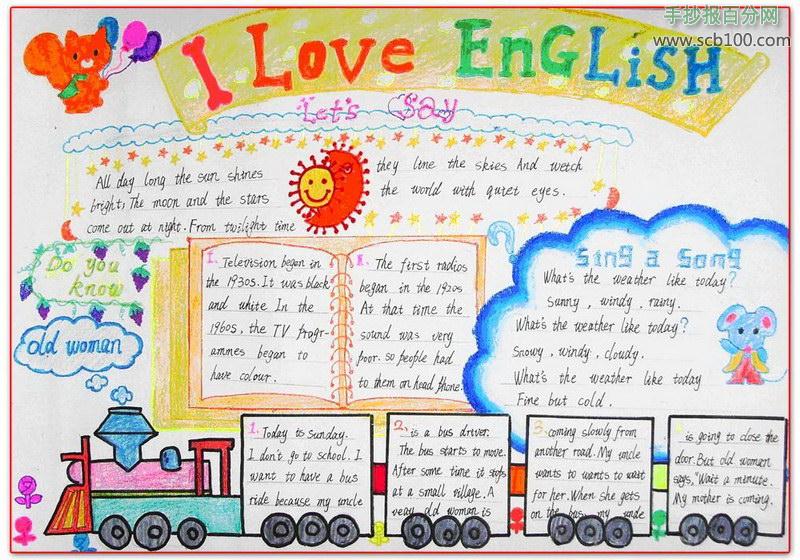 手抄报百分网
www.scb100.com
I Love EnGLiSH
Let's Say
All day long the sun shines
bright, The moon and the stars
come out at night. From twilight time
they line the skies And wetch
the world with quiet eyes.
Do you
know
old woman
I. Television began in
the 1930s. It was black
and white In the
1960s, the TV progr-
ammes began to
have colour.
II. The first radios
began in the 1920s
At that time the
sound was very
poor. so people had
to them on head phone.
Sing a Song
What's the weather like today?
Sunny, windy, rainy.
What's the weather like today?
Snowy, windy, cloudy.
What's the weather like today
Fine but cold.
1. Today is Sunday.
I don't go to school. I
want to have a bus
ride because my uncle
2. is a bus driver.
The bus starts to move.
After some time it stops
at a small village. A
very old woman is
3. coming slowly from
another road. My uncle
wants to wants to wait
for her. When she gets
on the bus, my uncle
is going to close the
door. But old woman
says, "Wait a minute.
My mother is coming.